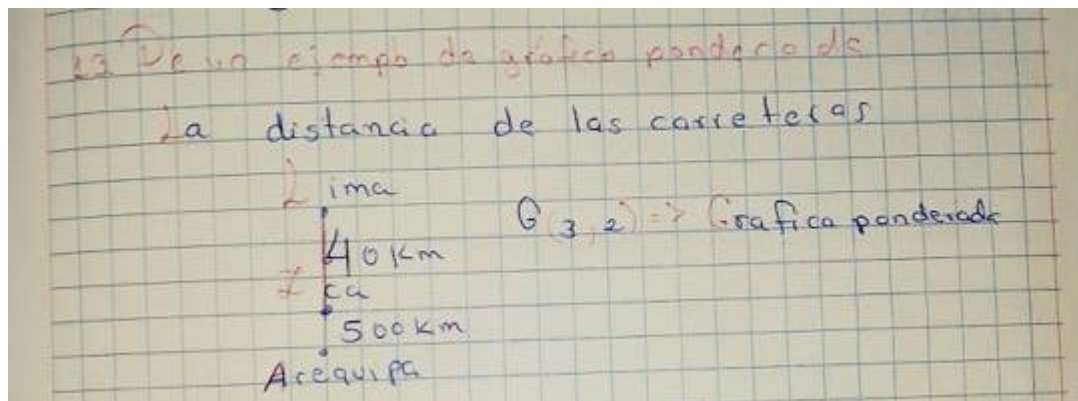 23 De un ejempo de gráfica ponderada
La distancia de las carreteras
Lima
40 Km
Ica
500 Km
Arequipa
G(3,2) => Grafica ponderada